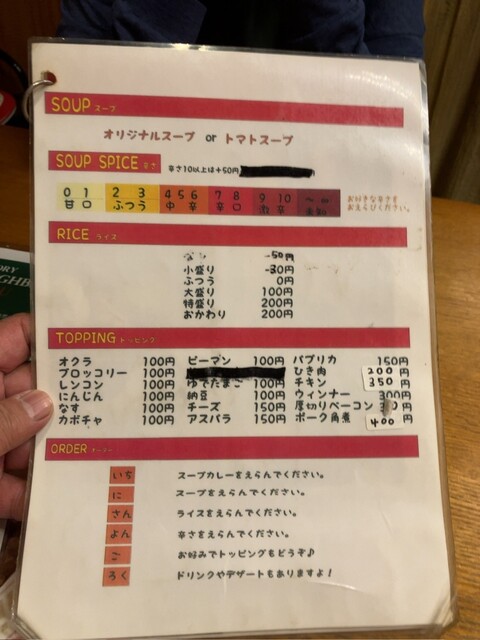 SOUP スープ
オリジナルスープ or トマトスープ
SOUP SPICE 辛さ
辛さ10以上は+50円
0 1 2 3 4 5 6 7 8 9 10 ～ ∞
甘口 ふつう 中辛 辛口 激辛
お好きな辛さを
おえらびください。
RICE ライス
-50円
小盛り -30円
ふつう 0円
大盛り 100円
特盛り 200円
おかわり 200円
TOPPING トッピング
オクラ 100円 ピーマン 100円 パプリカ 150円
ブロッコリー 100円 ひき肉 200円
レンコン 100円 ゆでたまご 100円 チキン 350円
にんじん 100円 納豆 100円 ウィンナー 300円
なす 100円 チーズ 150円 厚切りベーコン 円
カボチャ 100円 アスパラ 150円 ポーク角煮 400
ORDER オーダー
いち スープカレーをえらんでください。
に スープをえらんでください。
さん ライスをえらんでください。
よん 辛さをえらんでください。
ご お好みでトッピングもどうぞ♪
ろく ドリンクやデザートもありますよ!